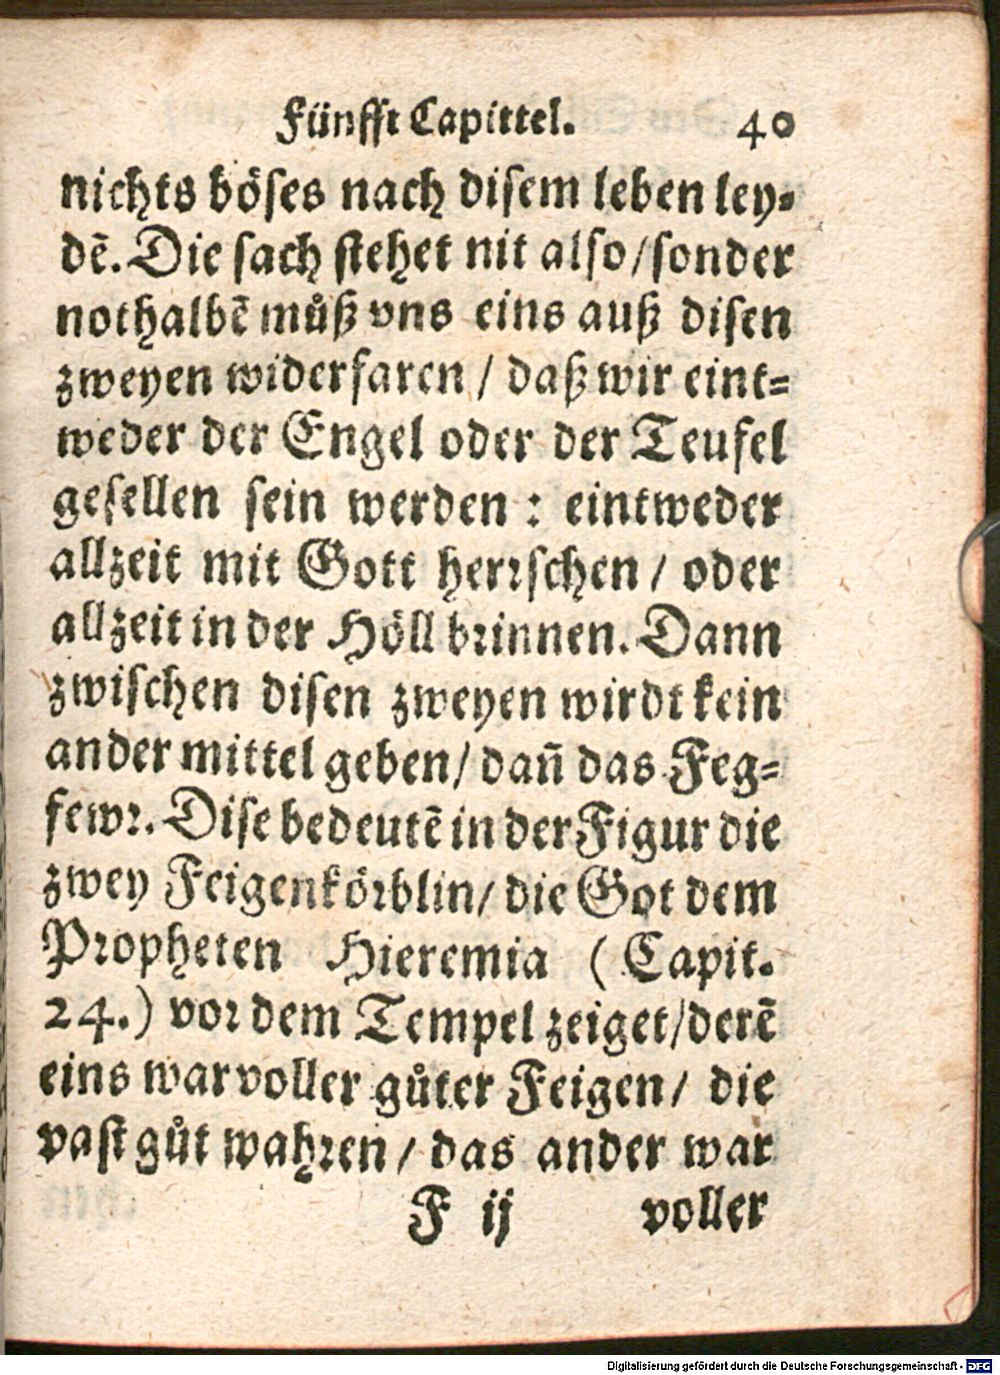 Fünfft Capittel. 40
nichts böses nach disem leben ley⸗
dē. Die sach stehet nit also/sonder
nothalbē můß vns eins auß disen
zweyen widerfaren / daß wir eint⸗
weder der Engel oder der Teufel
gesellen sein werden : eintweder
allzeit mit Gott herrschen / oder
allzeit in der Höll brinnen. Dann
zwischen disen zweyen wirdt kein
ander mittel geben/ dañ das Feg⸗
fewr. Dise bedeutē in der Figur die
zwey Feigenkörblin/ die Got dem
Propheten Hieremia ( Capit.
24.) vor dem Tempel zeiget/derē
eins war voller gůter Feigen/ die
vast gůt wahren / das ander war
F ij voller
Digitalisierung gefördert durch die Deutsche Forschungsgemeinschaft - DFG